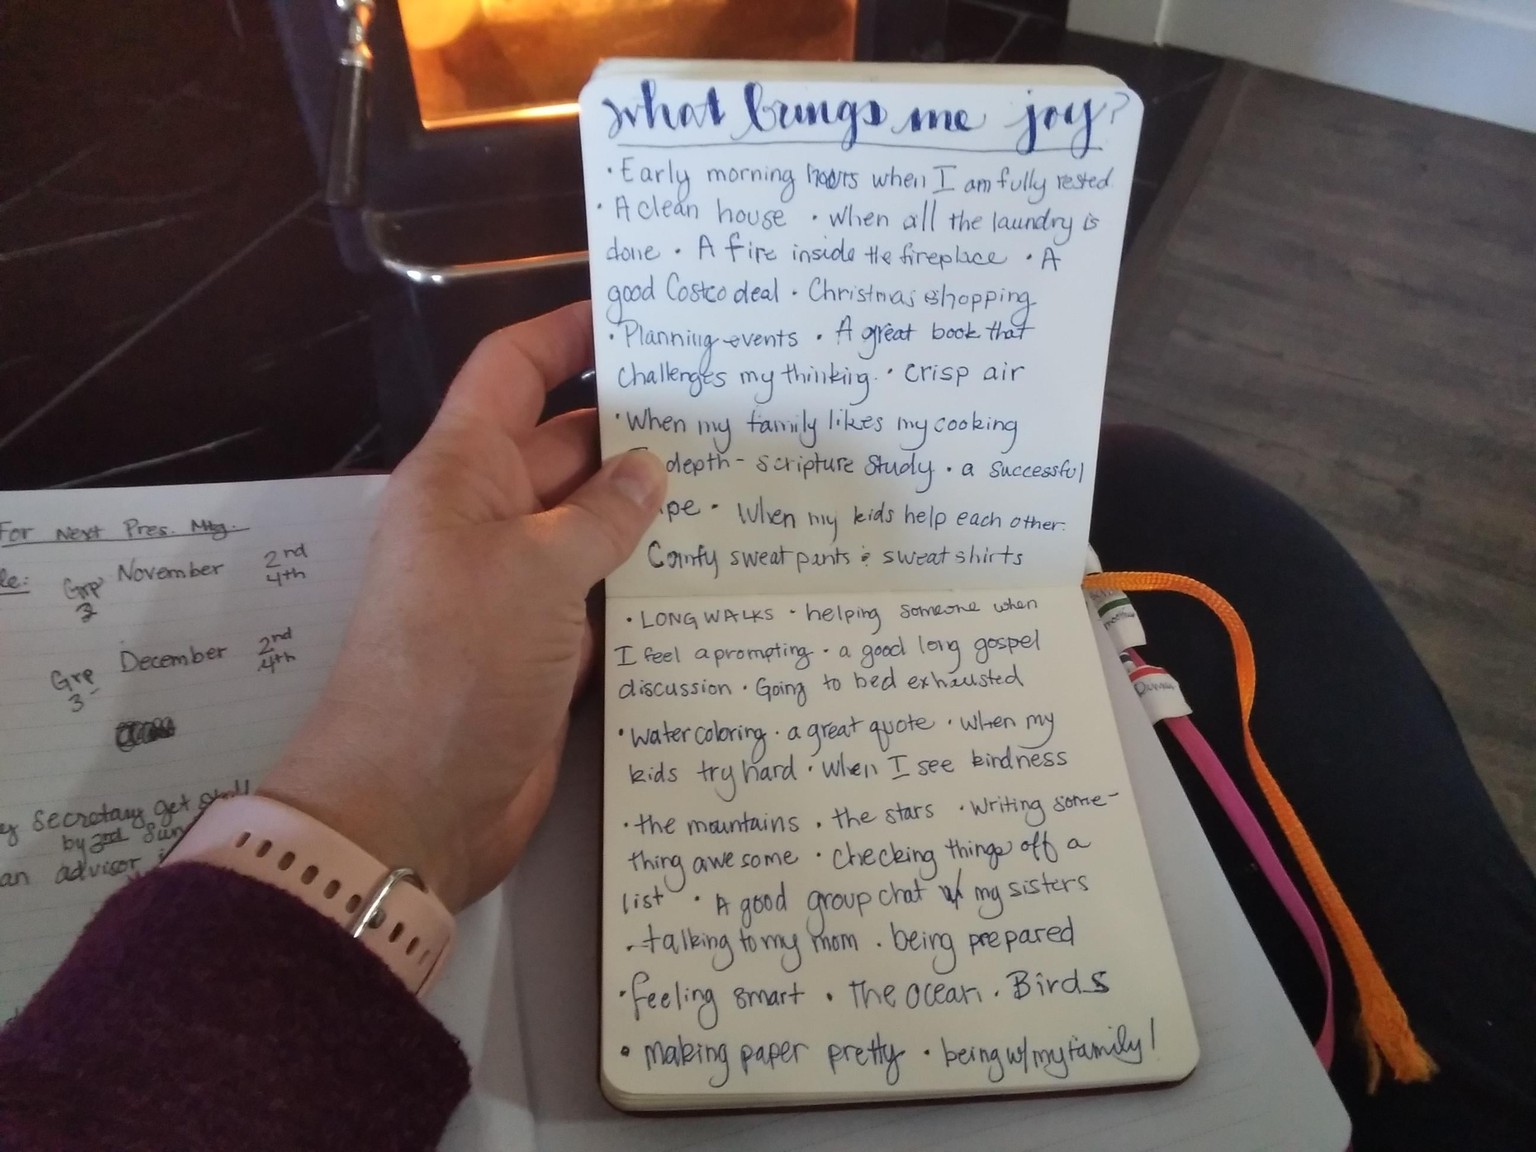 what brings me joy?
· Early morning hours when I am fully rested
· A clean house · when all the laundry is
done · A fire inside the fireplace · A
good Costco deal · Christmas shopping
· Planning events · A great book that
challenges my thinking. · crisp air
· When my family likes my cooking
depth - scripture study · a successful
ipe · When my kids help each other.
Comfy sweatpants & sweatshirts
· LONG WALKS · helping someone when
I feel a prompting · a good long gospel
discussion · Going to bed exhausted
· watercoloring · a great quote · when my
kids try hard · when I see kindness
· the mountains · the stars · writing some-
thing awesome · checking things off a
list · A good group chat w/ my sisters
· talking to my mom · being prepared
· feeling smart · the ocean · Birds
· making paper pretty · being w/ my family!
For Next Pres. Mtg.
le:
Grp 2 November 2nd 4th
Grp 3 December 2nd 4th
y secretary get
by 2nd Sun
an advisor